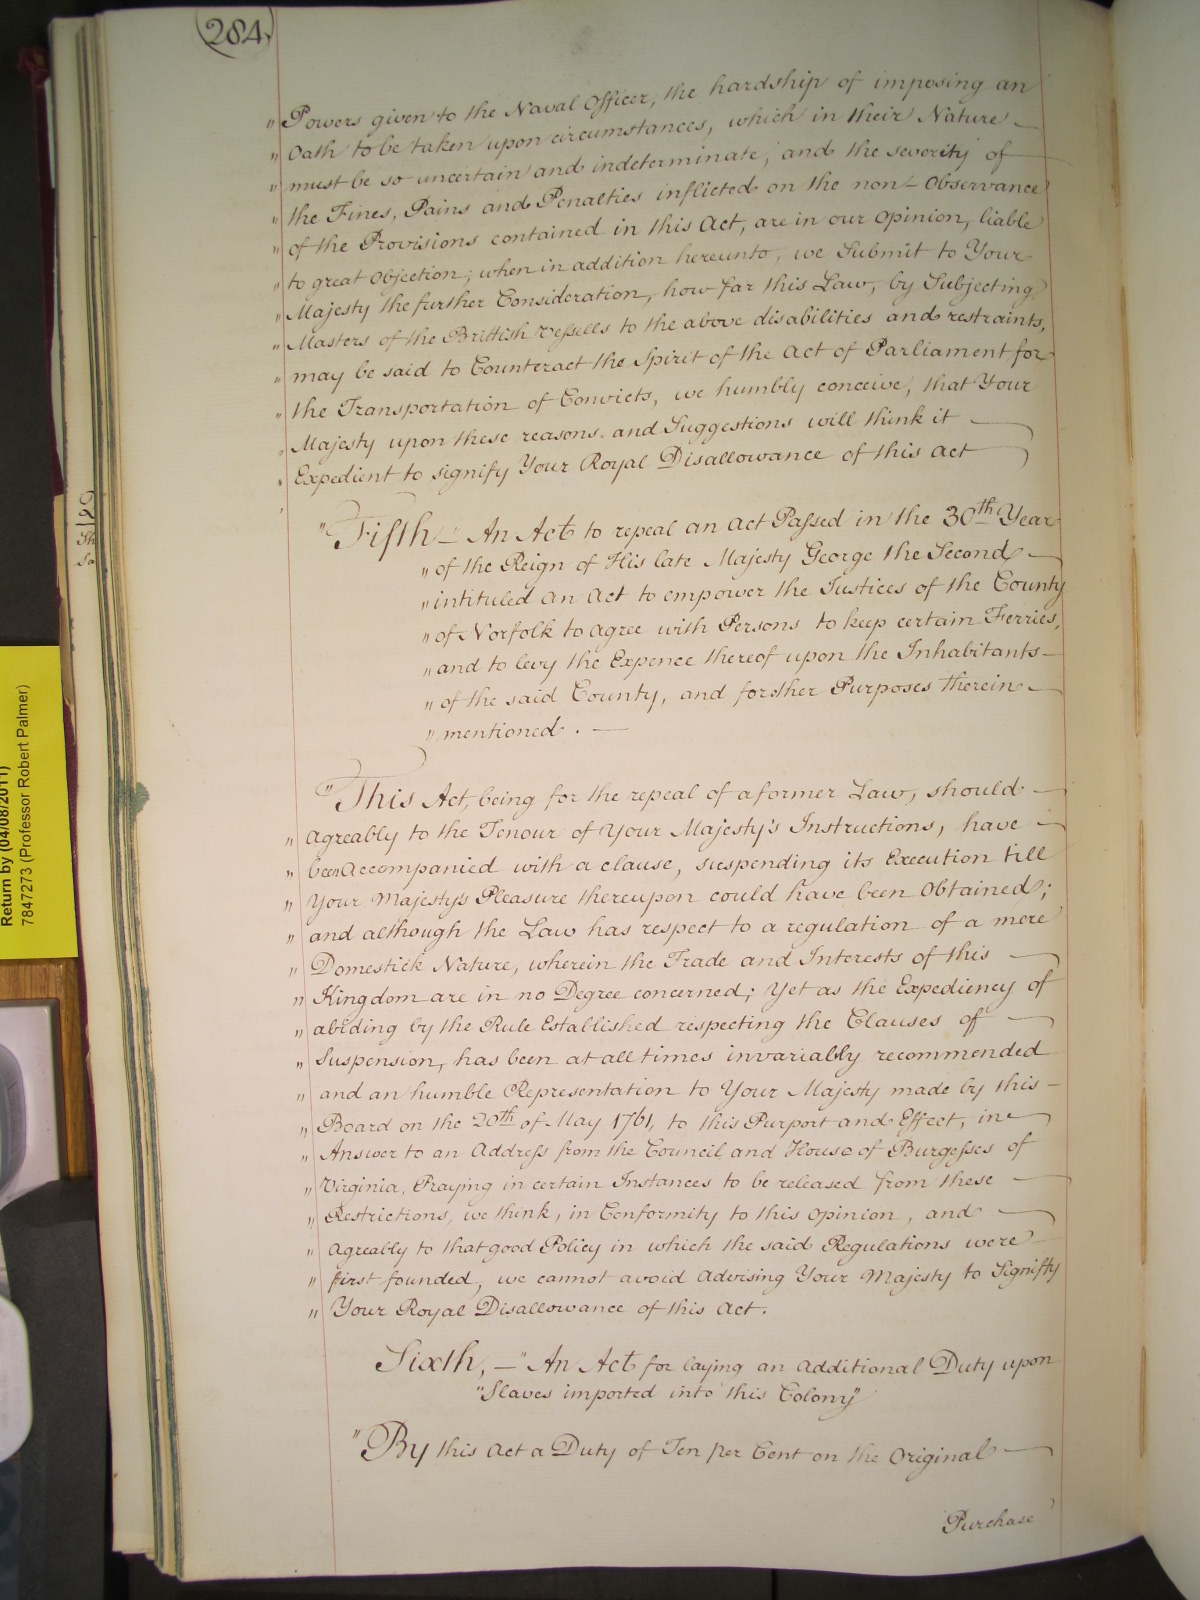 284.
" Powers given to the Naval Officer, the hardship of imposing an
" Oath to be taken upon circumstances, which in their Nature
" must be so uncertain and indeterminate; and the severity of
" the Fines, Pains and Penalties inflicted on the non-Observance
" of the Provisions contained in this Act, are in our Opinion, liable
" to great Objection; when in addition hereunto, we Submit to Your
" Majesty the further Consideration, how far this Law, by Subjecting
" Masters of the Brittish Vessells to the above disabilities and restraints,
" may be said to Counteract the Spirit of the Act of Parliament for
" the Transportation of Convicts, we humbly conceive, that Your
" Majesty upon these reasons and Suggestions will think it
" Expedient to signify Your Royal Disallowance of this Act
" Fifth — An Act to repeal an Act Passed in the 30th Year
" of the Reign of His late Majesty George the Second
" intituled an Act to empower the Justices of the County
" of Norfolk to agree with Persons to keep certain Ferries,
" and to levy the Expence thereof upon the Inhabitants
" of the said County, and for other Purposes therein
" mentioned.
" This Act, being for the repeal of a former Law, should
" agreably to the Tenour of Your Majesty's Instructions, have
" been Accompanied with a clause, suspending its Execution till
" Your Majesty's Pleasure thereupon could have been Obtained;
" and although the Law has respect to a regulation of a mere
" Domestick Nature, wherein the Trade and Interests of this
" Kingdom are in no Degree concerned; Yet as the Expediency of
" abiding by the Rule Established respecting the Clauses of
" Suspension, has been at all times invariably recommended
" and an humble Representation to Your Majesty made by this
" Board on the 20th of May 1761, to this Purport and Effect, in
" Answer to an Address from the Council and House of Burgesses of
" Virginia, Praying in certain Instances to be released from these
" Restrictions, we think, in Conformity to this Opinion, and
" agreably to that good Policy in which the said Regulations were
" first founded, we cannot avoid Advising Your Majesty to Signifty
" Your Royal Disallowance of this Act.
Sixth, — " An Act for laying an Additional Duty upon
" Slaves imported into this Colony"
" By this Act a Duty of Ten per Cent on the Original
Purchase
Return by (04/08/2011)
7847273 (Professor Robert Palmer)